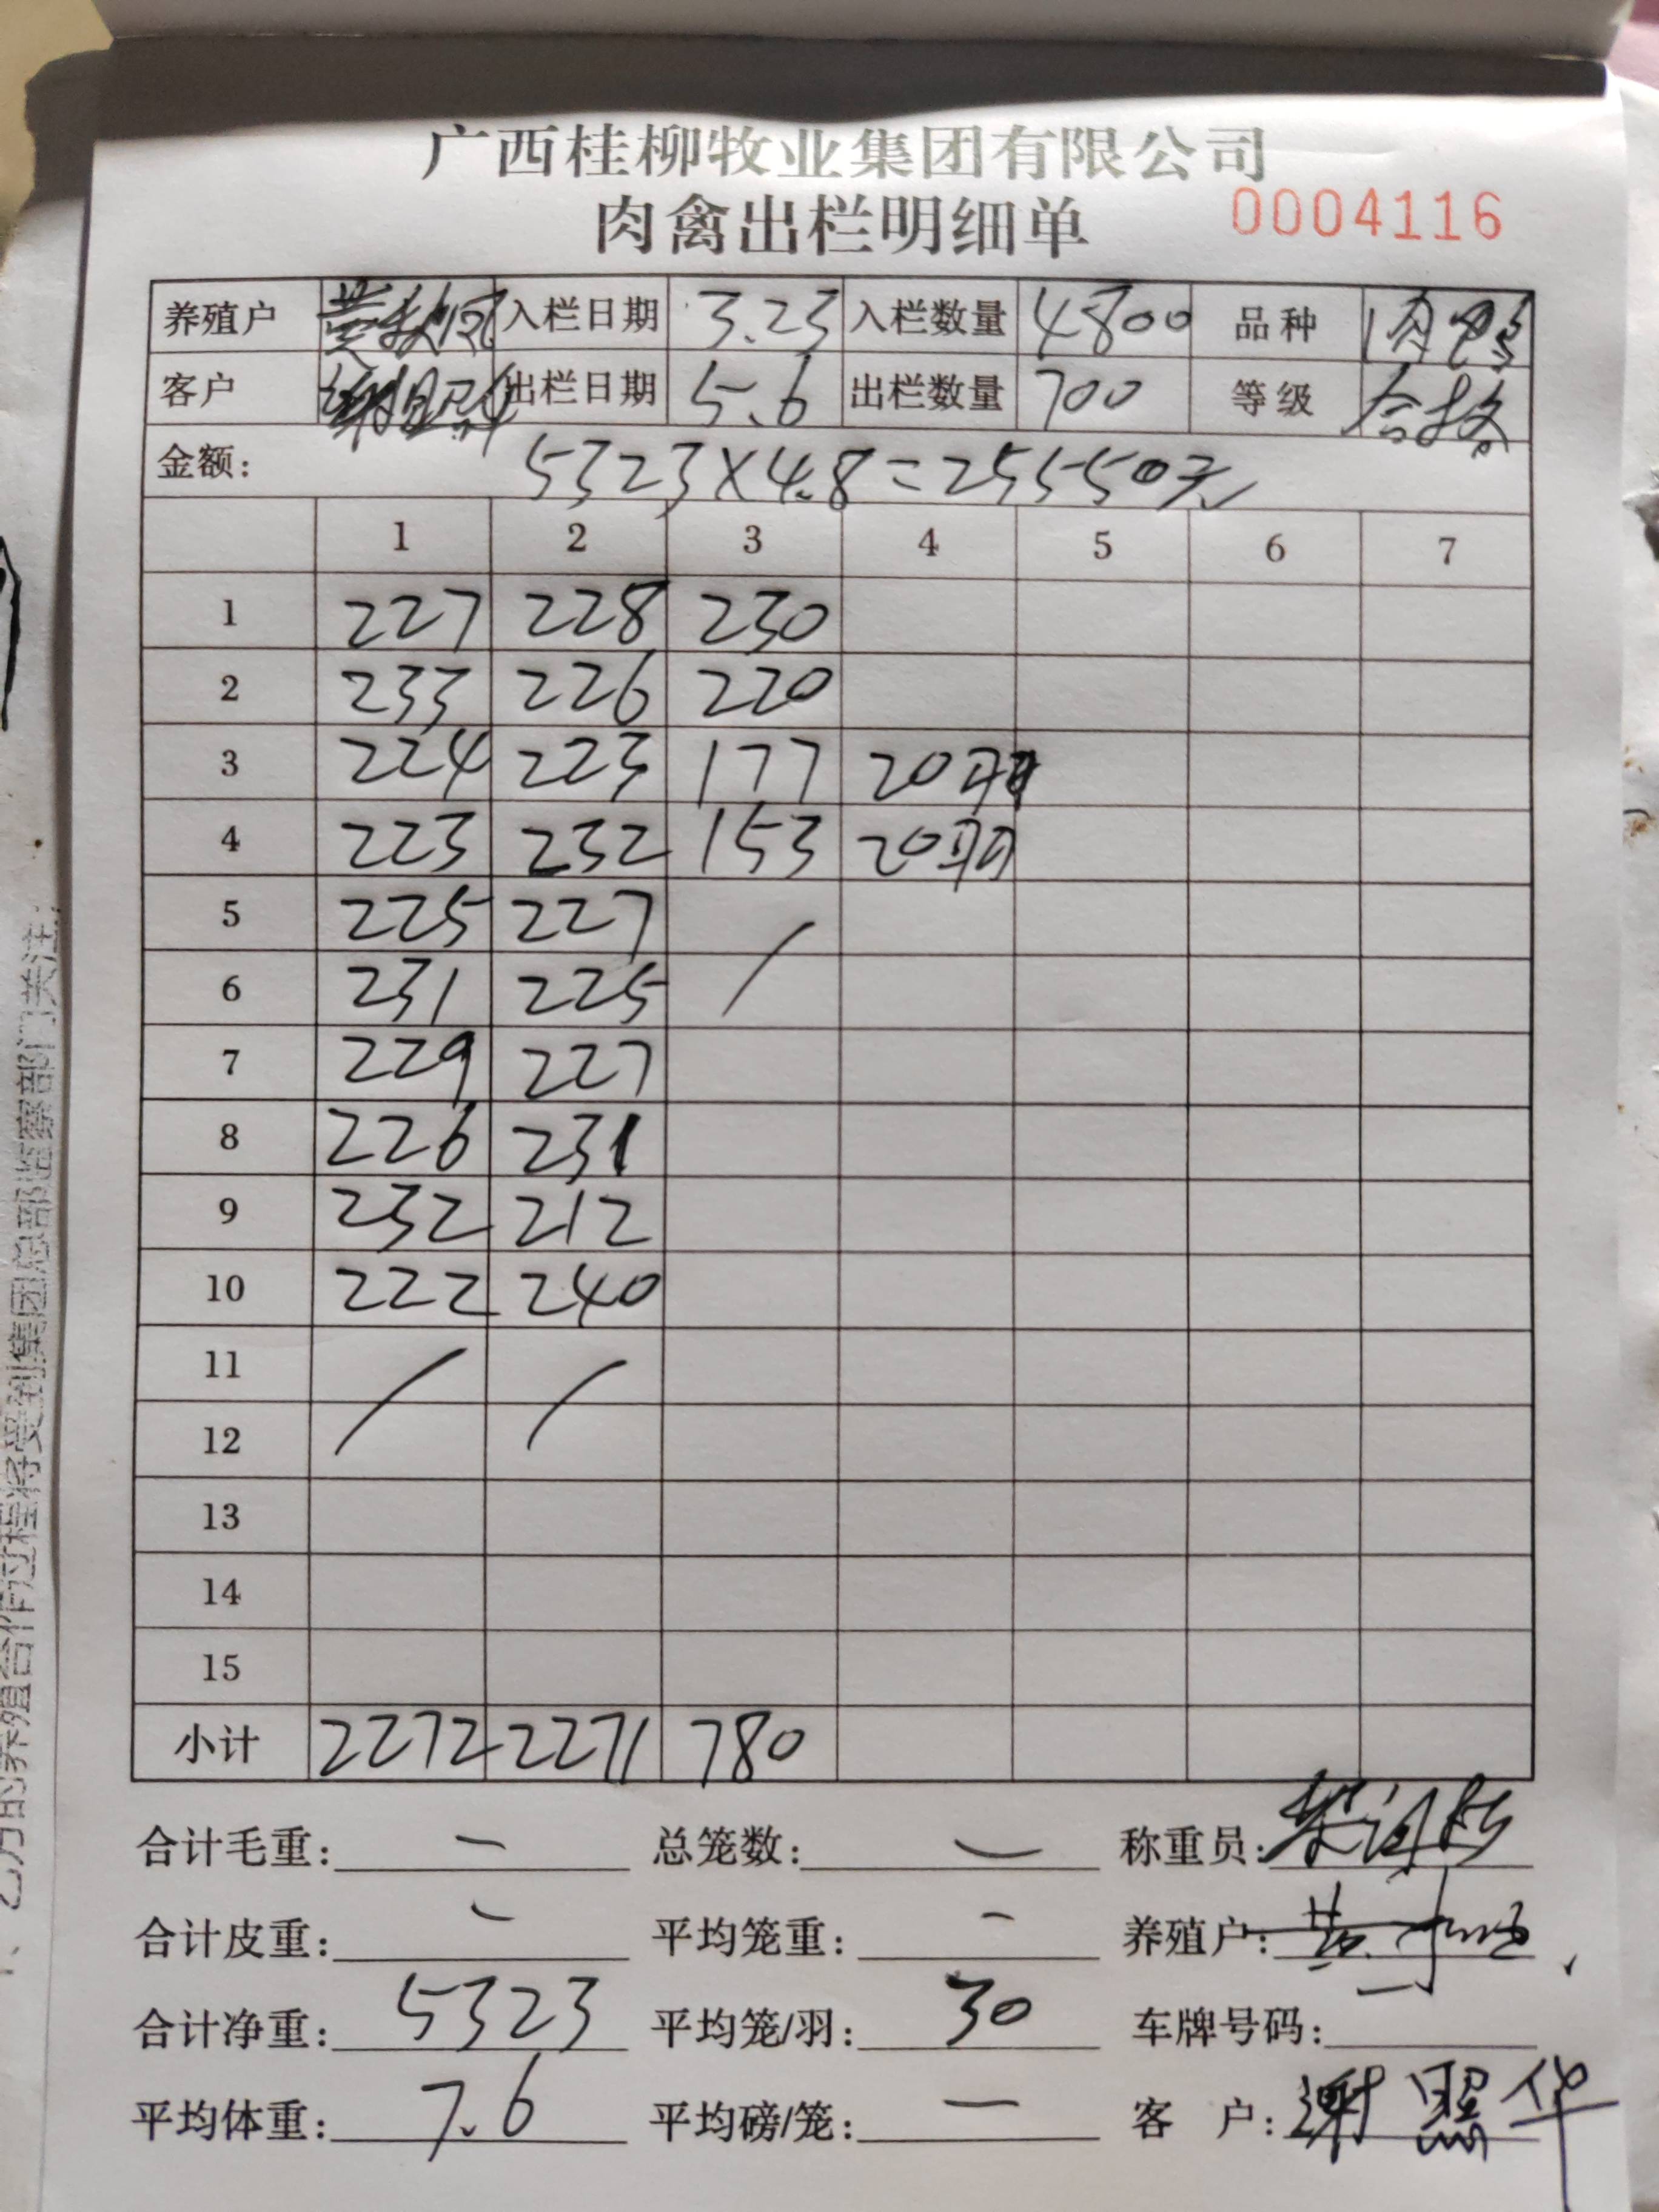 广西桂柳牧业集团有限公司
肉禽出栏明细单 0004116
养殖户 入栏日期 3.23 入栏数量 4800 品种 肉鸭
客户 谢照华 出栏日期 5.6 出栏数量 700 等级 合格
金额: 5323×4.8=25550元
1 2 3 4 5 6 7
1 227 228 230
2 233 226 220
3 224 223 177 20羽
4 223 232 153 20羽
5 225 227 /
6 231 225
7 229 227
8 226 231
9 232 212
10 222 240
11 / /
12
13
14
15
小计 2272 2271 780
合计毛重: — 总笼数: — 称重员:
合计皮重: — 平均笼重: — 养殖户:
合计净重: 5323 平均笼/羽: 30 车牌号码:
平均体重: 7.6 平均磅/笼: — 客 户: 谢照华
乙方的养殖合作过程将受到集团总部监察部门关注